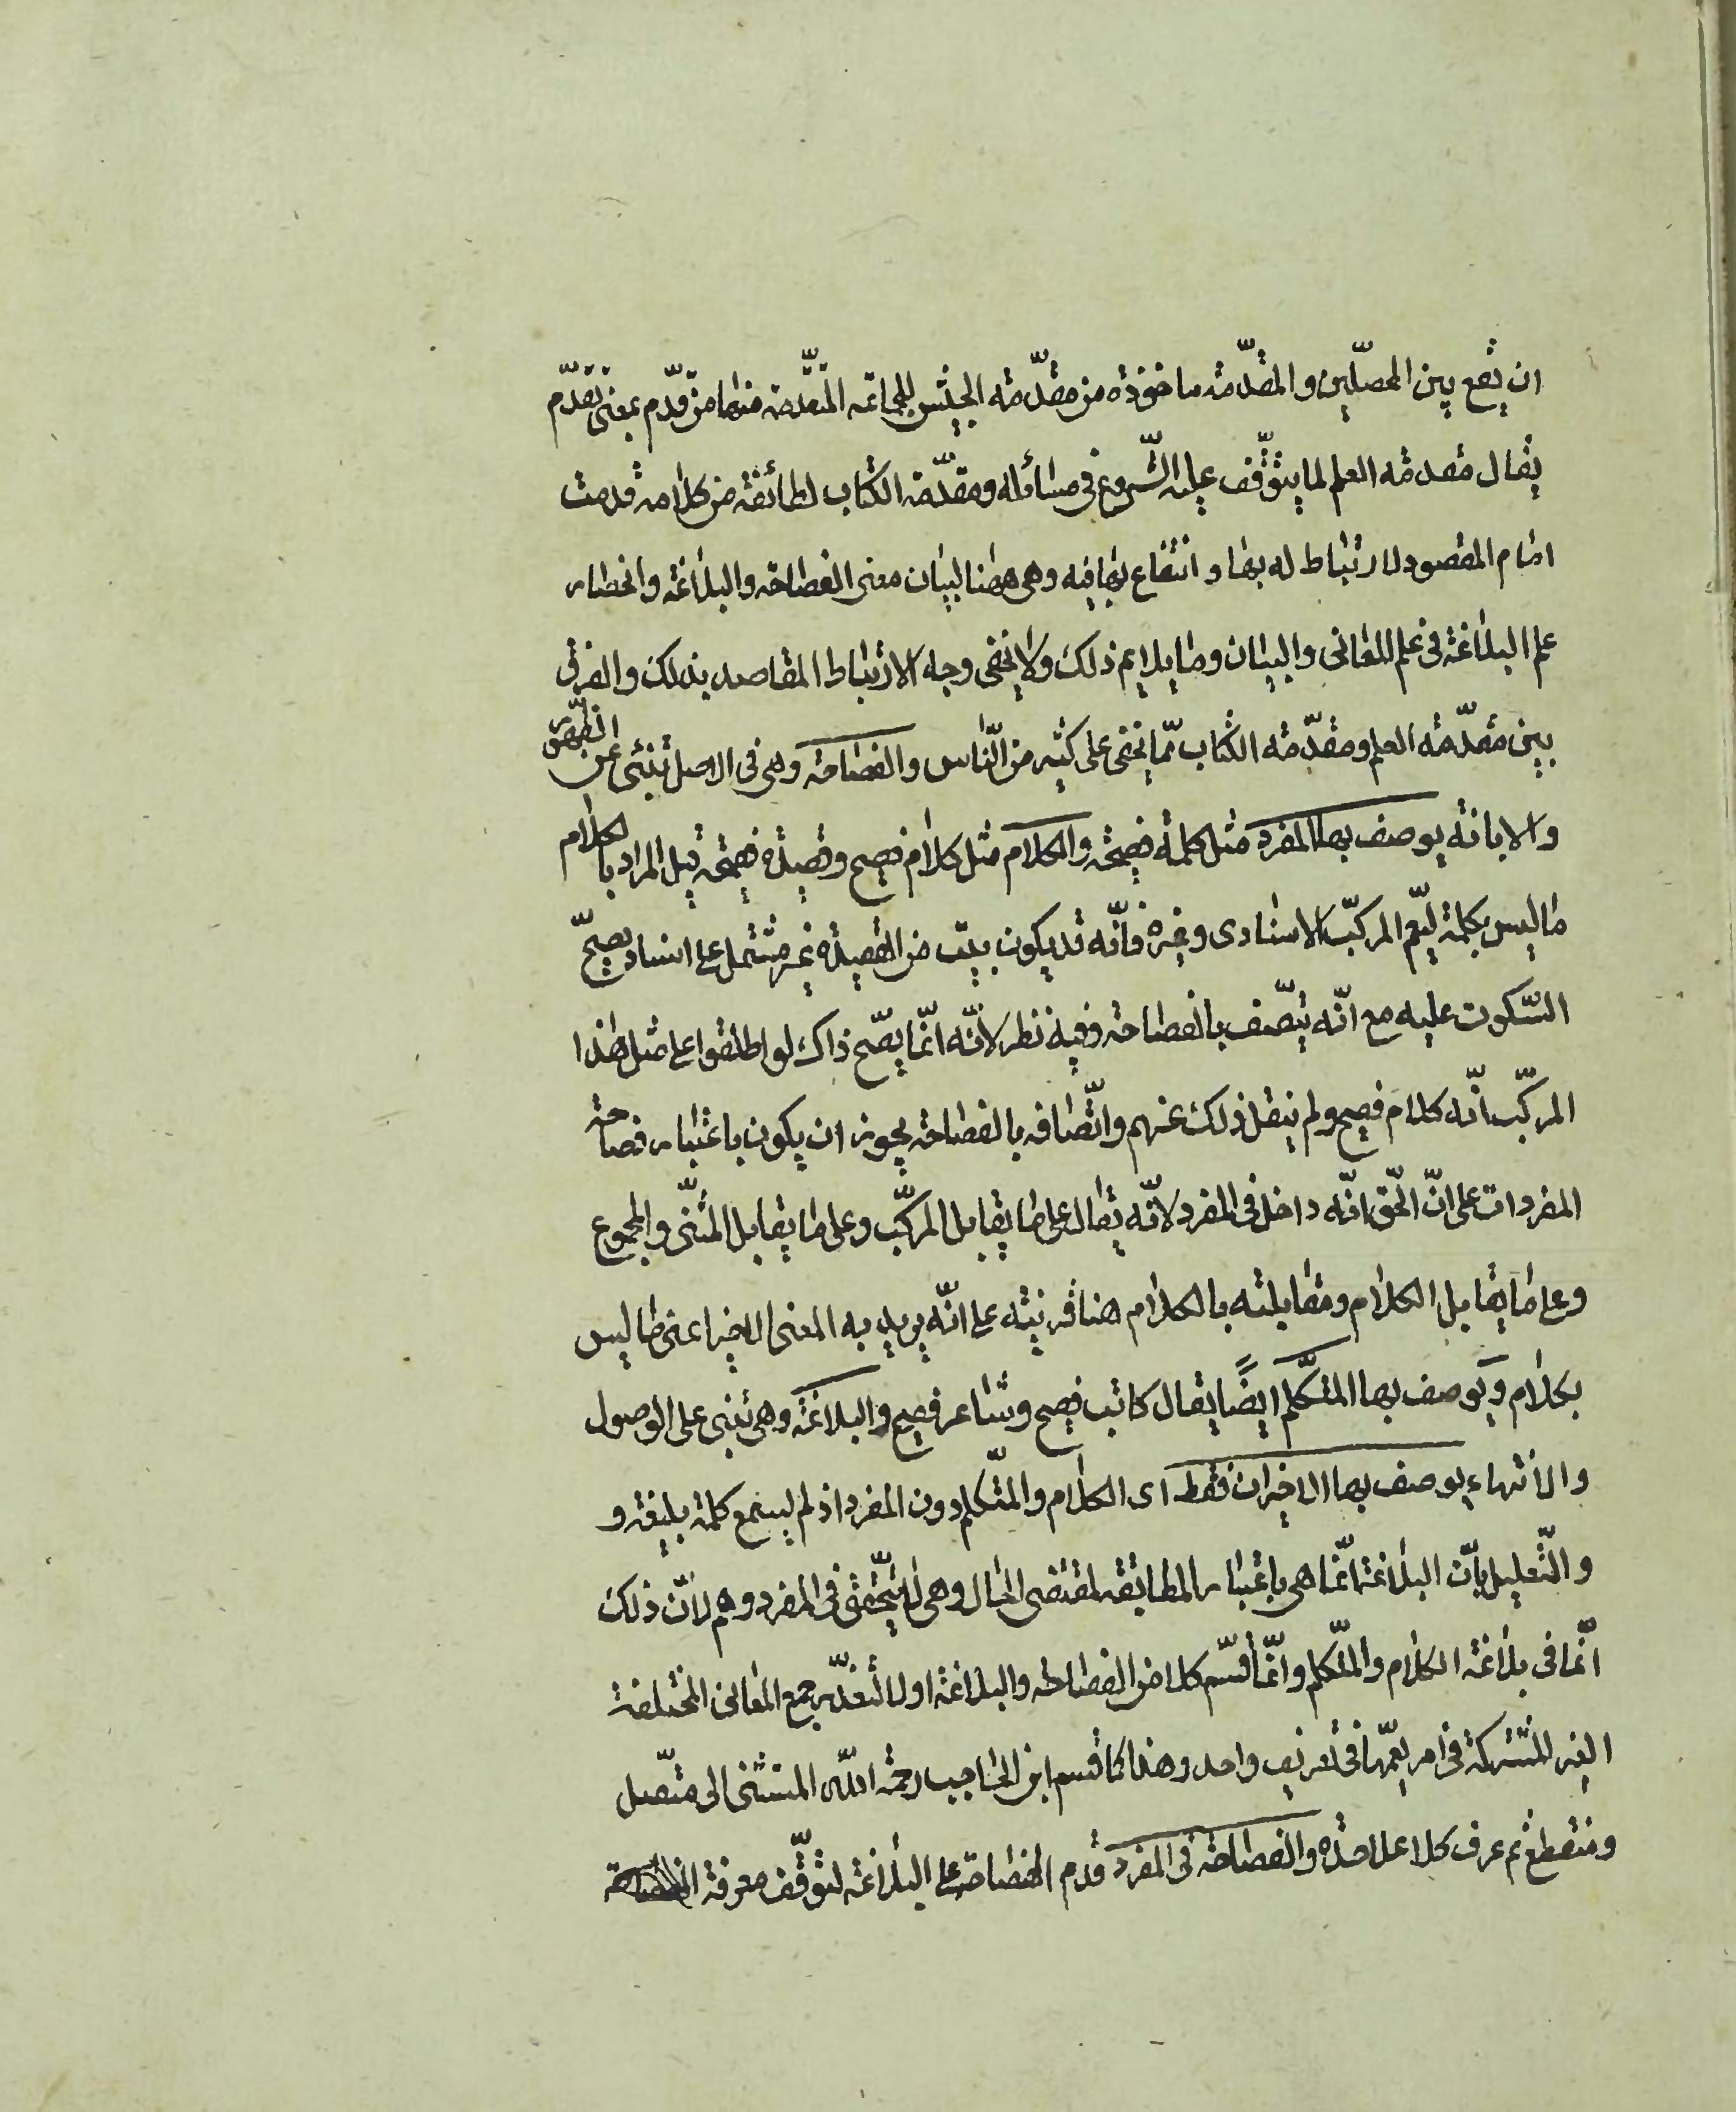 ان يقع بين المحصّلين والمقدّمة ماخوذة من مقدّمة الجيش للجماعة المتقدّمة منها من قدّم بمعنى تقدّم
يقال مقدمة العلم لما يتوقّف عليه الشّروع فى مسائله ومقدّمة الكتاب لطائفة من كلامه قدمت
امام المقصود لارتباط له بها وانتفاع بها فيه وهى ههنا لبيان معنى الفصاحة والبلاغة وانحصار
علم البلاغة فى علم المعانى والبيان وما يلايم ذلك ولا يخفى وجه الارتباط المقاصد بذلك والفرق
بين مقدّمة العلم ومقدّمة الكتاب ممّا يخفى على كثير من النّاس والفصاحة وهى فى الاصل تنبئ عن الظّهور
والابانة يوصف بها المفرد مثل كلمة فصيحة والكلام مثل كلام فصيح وقصيدة فصيحة قيل المراد بالكلام
ما ليس بكلمة ليعّم المركّب الاسنادى وغيره فانّه قد يكون بيت من القصيدة غير مشتمل على اسناد يصحّ
السّكوت عليه مع انّه يتّصف بالفصاحة وفيه نظر لانّه انّما يصّح ذاك لو اطلقوا على مثل هذا
المركّب انّه كلام فصيح ولم ينقل ذلك عنهم واتّصافه بالفصاحة يجوز ان يكون باعتبار فصاحة
المفردات على انّ الحّق انّه داخل فى المفرد لانّه يقال على ما يقابل المركّب وعلى ما يقابل المثنّى والمجموع
وعلى ما يقابل الكلام ومقابلته بالكلام هنا قرينة على انّه يريد به المعنى الاخير اعنى ما ليس
بكلام ويوصف بها المتكّلم ايضًا يقال كاتب فصيح وشاعر فصيح والبلاغة وهى تنبى على الوصول
والانتهاء يوصف بها الاخيران فقط اى الكلام والمتّكلم دون المفرد اذ لم يسمع كلمة بليغة و
والتّعليل بانّ البلاغة انّما هى باعتبار المطابقة لمقتضى الحال وهى لا يتحّقق فى المفرد وهم لانّ ذلك
انّما فى بلاغة الكلام والمتّكلم وانّما قسّم كلا من الفصاحة والبلاغة اولا لتعذّر جمع المعانى المختلفة
الغير المشتركة فى امر يعمّها فى تعريف واحد وهذا كما قسم ابن الحاجب رحمة اللّه المستثنى الى متّصل
ومنقطع ثم عرف كلا على حدة والفصاحة فى المفرد قدم الفصاحة على البلاغة لتوقّف معرفة